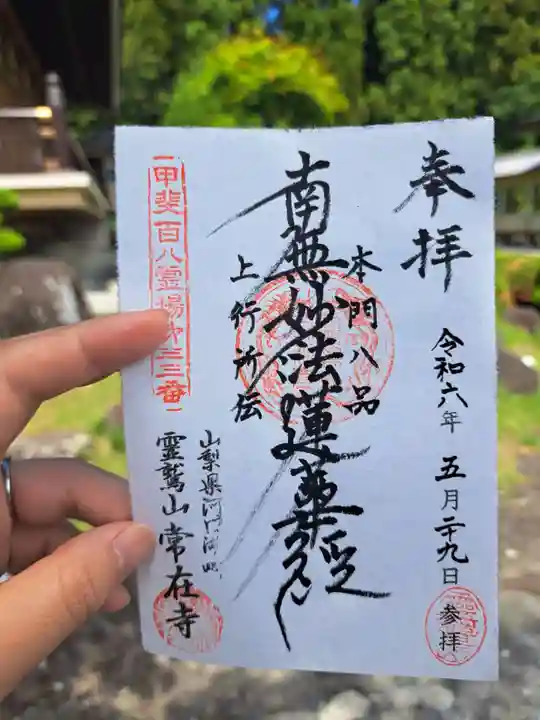 奉拝
令和六年 五月二十九日
参拝
本門八品
南無妙法蓮華経
上行所伝
山梨県
霊鷲山 常在寺
甲斐百八霊場